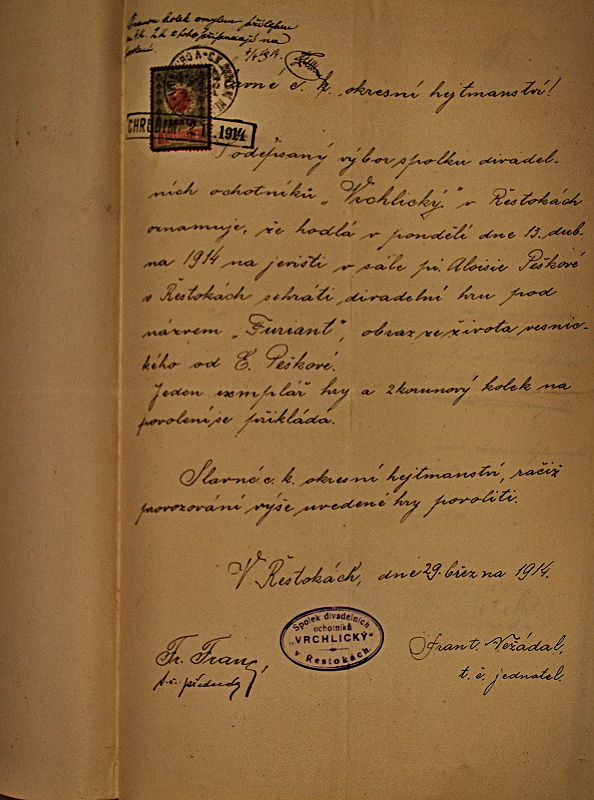 kolek omylem přilepen
na
c. k. okresní hejtmanství!
CHRUDIM 1914
Podepsaný výbor spolku divadel-
ních ochotníků „Vrchlický“ v Řestokách
oznamuje, že hodlá v pondělí dne 13. dub-
na 1914 na jevišti v sále pí. Aloisie Peškové
v Řestokách sehráti divadelní hru pod
názvem „Furiant“, obraz ze života vesnic-
kého od E. Peškové.
Jeden exemplář hry a 2korunový kolek na
povolení se přikládá.
Slavné c. k. okresní hejtmanství, račiž
provozování výše uvedené hry povoliti.
V Řestokách, dne 29. břez na 1914.
Spolek divadelních
ochotníků
„VRCHLICKÝ“
v Řestokách.
Fr. Franc
t. č. předseda
Frant. Nežádal,
t. č. jednatel.